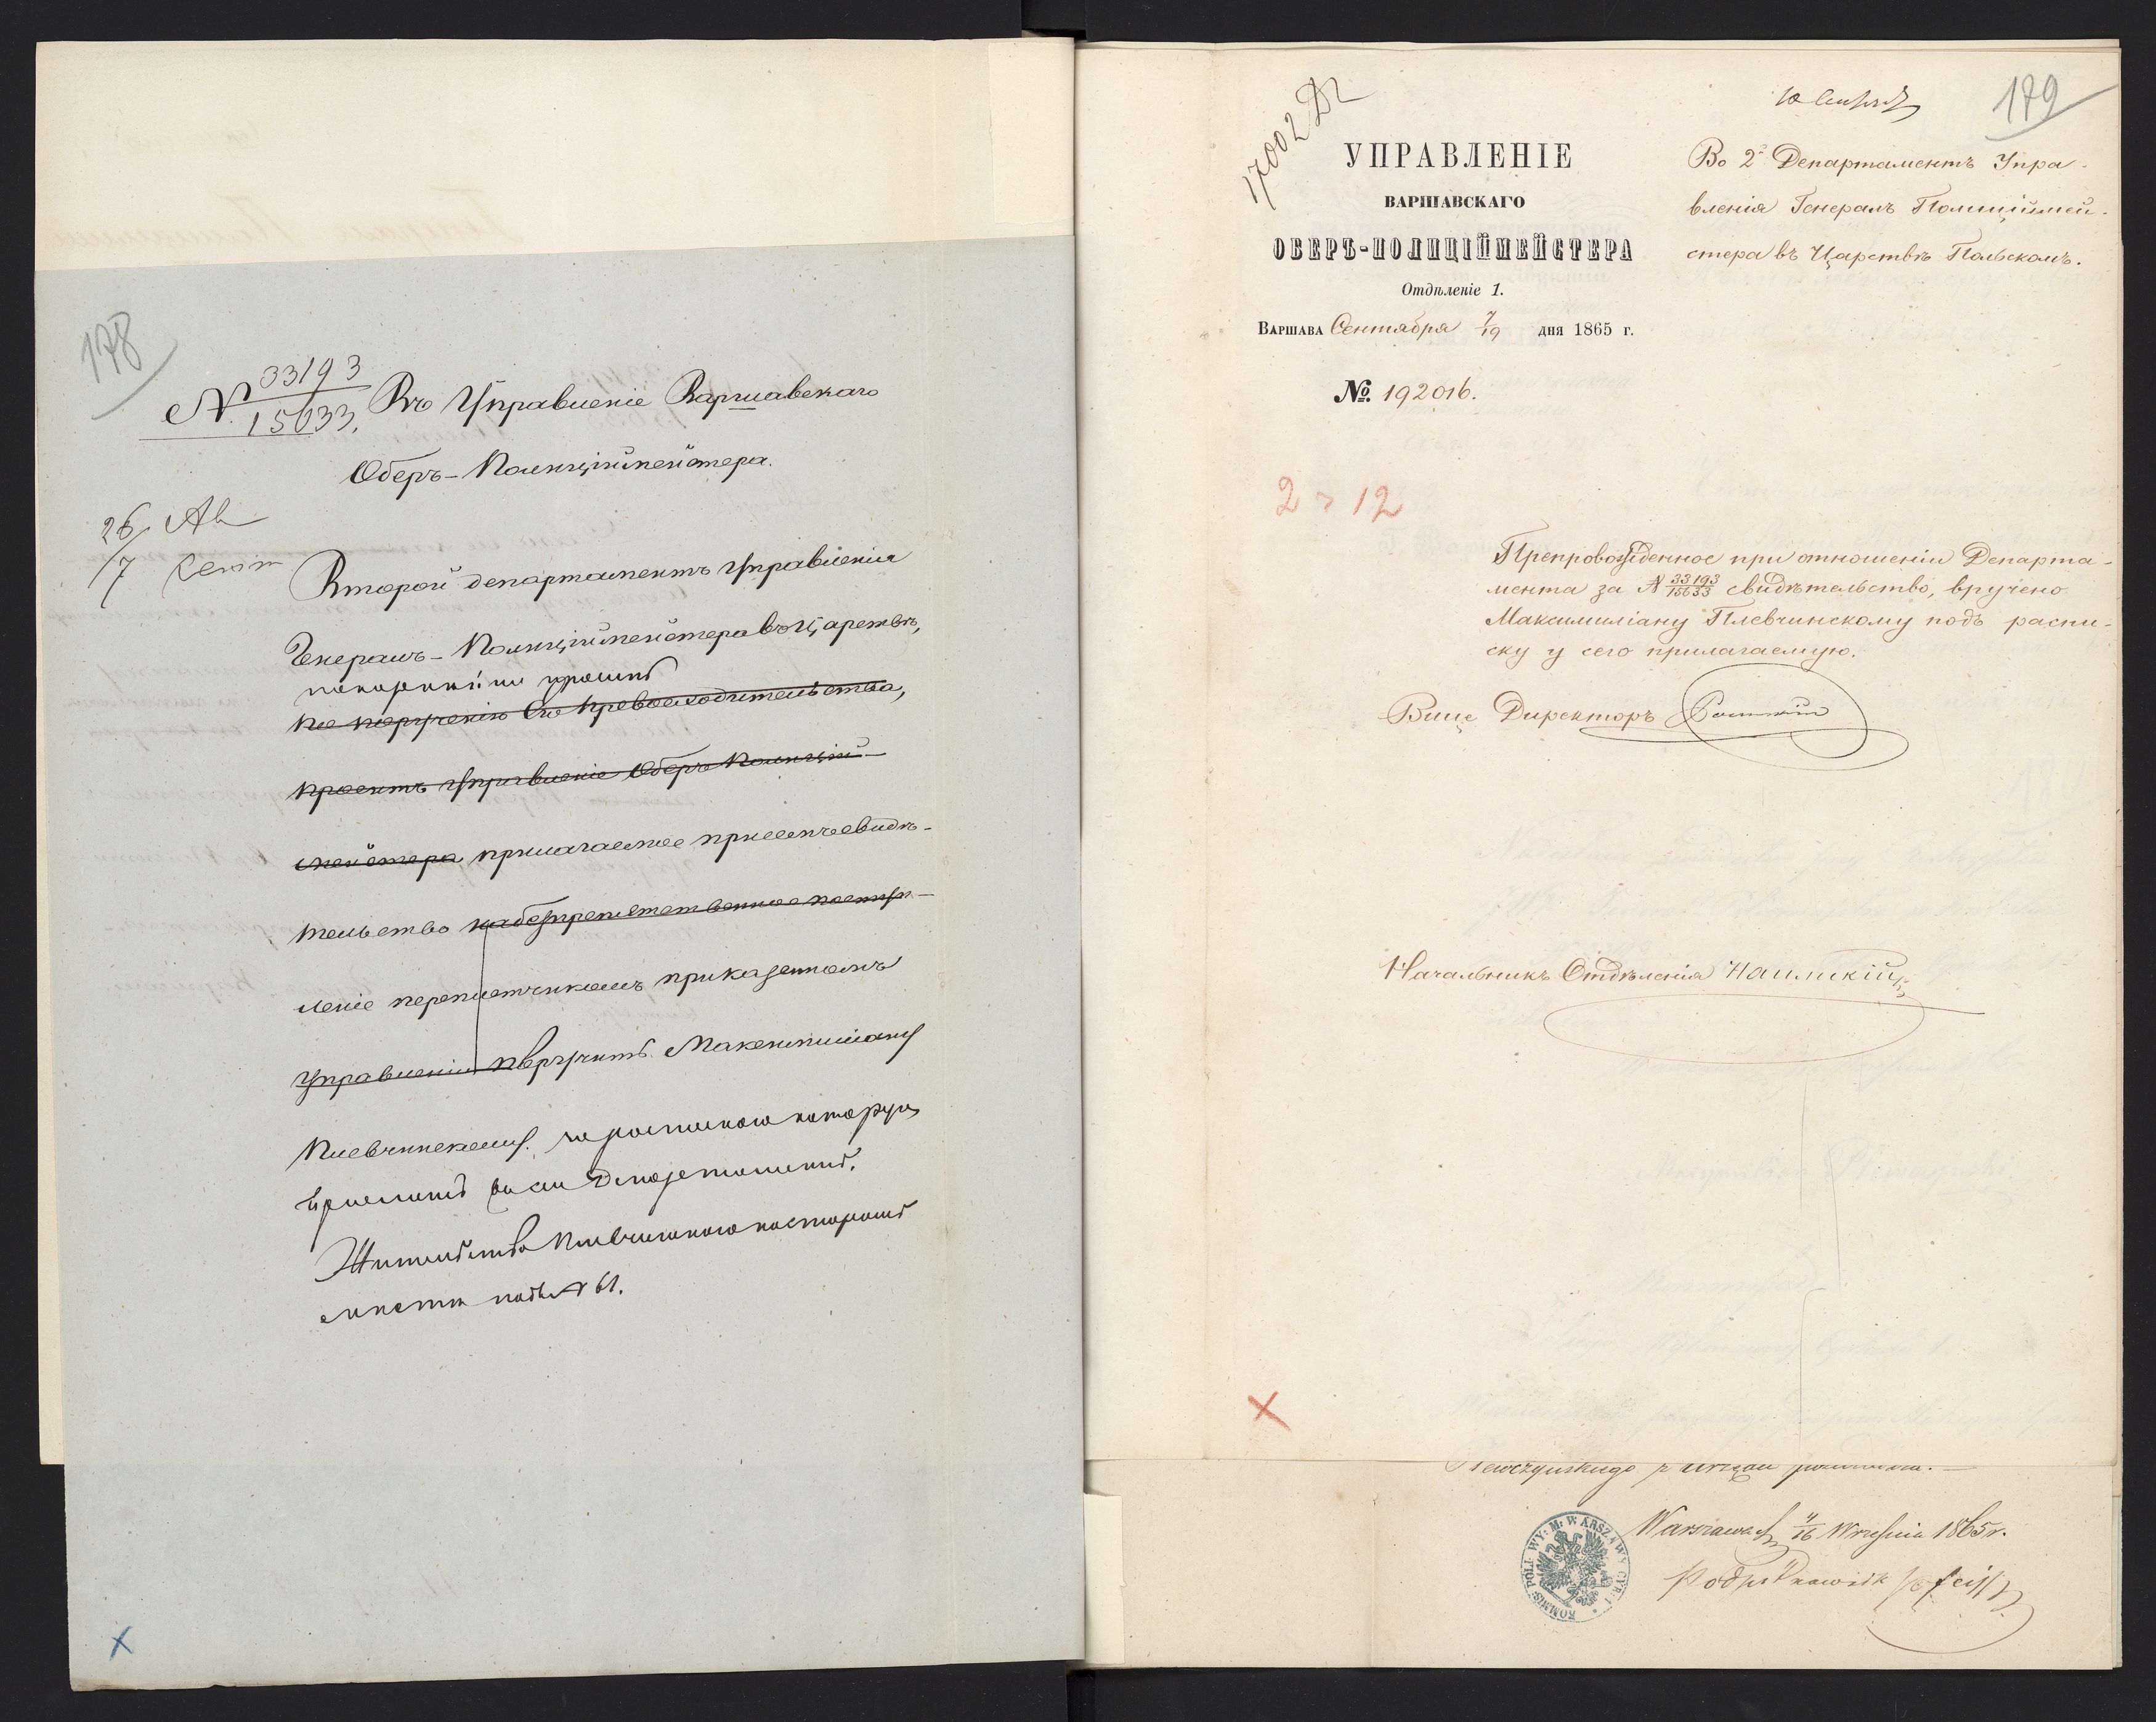 178
№ 33193
15633.
Въ Управленіе Варшавскаго
Оберъ-Полиційменстера.
26/7 Ав
Сент
Второй департаментъ Управленія
Генералъ-Полиційменстера въ Царствѣ,
покорнѣйше проситъ
по порученію Его Превосходительства,
проситъ Управленіе Оберъ Полицій-
менстера прилагаемое при семъ свидѣ-
тельство на безпрепятственное поступ-
леніе переписчикомъ при казенномъ
Управленіи вручить Максимиліану
Плевчинскому.
Департаментъ.
Жительство Плевчинскаго
мѣсто подъ № 61.
179
17002
УПРАВЛЕНІЕ
ВАРШАВСКАГО
ОБЕРЪ-ПОЛИЦІЙМЕЙСТЕРА
Отдѣленіе 1.
ВАРШАВА Сентября 7/19 дня 1865 г.
№ 192016.
Во 2й Департаментъ Упра-
вленія Генералъ Полиціймей-
стера въ Царствѣ Польскомъ.
2 12
Препровожденное при отношеніи Департа-
мента за № 33193/15633 свидѣтельство, вручено
Максимиліану Плевчинскому подъ распи-
ску у сего прилагаемую.
Вице Директоръ
Начальникъ Отдѣленія
Plewczyńskiego
Warszawa d. 4/16 Września 1865 r.
KOMMIS: POLI: WY: M: WARSZAWY CYR: